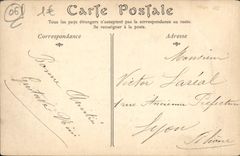 06
1€
Carte Postale
Tous les pays étrangers n'acceptent pas la correspondance au recto.
Se renseigner à la poste.
Correspondance
Adresse
Monsieur
Victor Laréal
1 rue Ancienne Préfecture
Lyon
Rhône
Bonne
Gustave